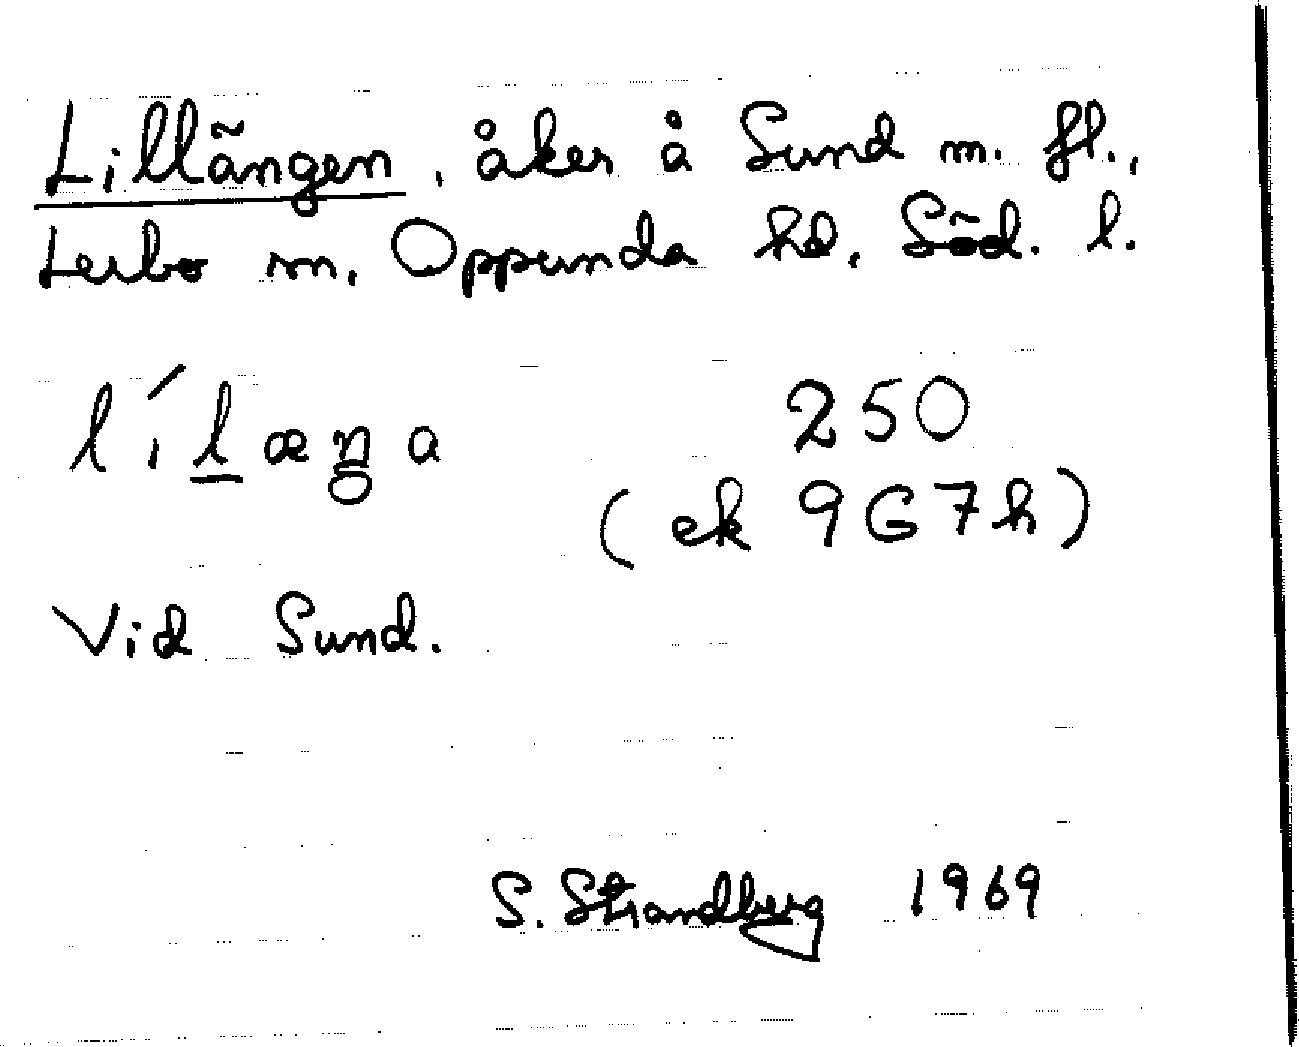 Lillängen, åker å Sund m. fl.,
Lerbo sn, Oppunda hd, Söd. l.
lı́læŋa 250
(ek 9G7h)
Vid Sund.
S. Strandberg 1969